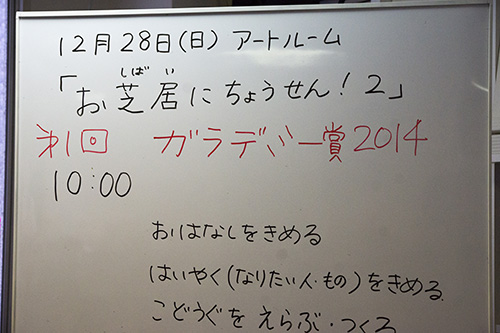 12月28日(日) アートルーム
「お芝居にちょうせん！2」
しば い
第1回 ガラデミー賞2014
10:00
おはなしをきめる
はいやく(なりたい人・もの)をきめる
こどうぐを えらぶ・つくる